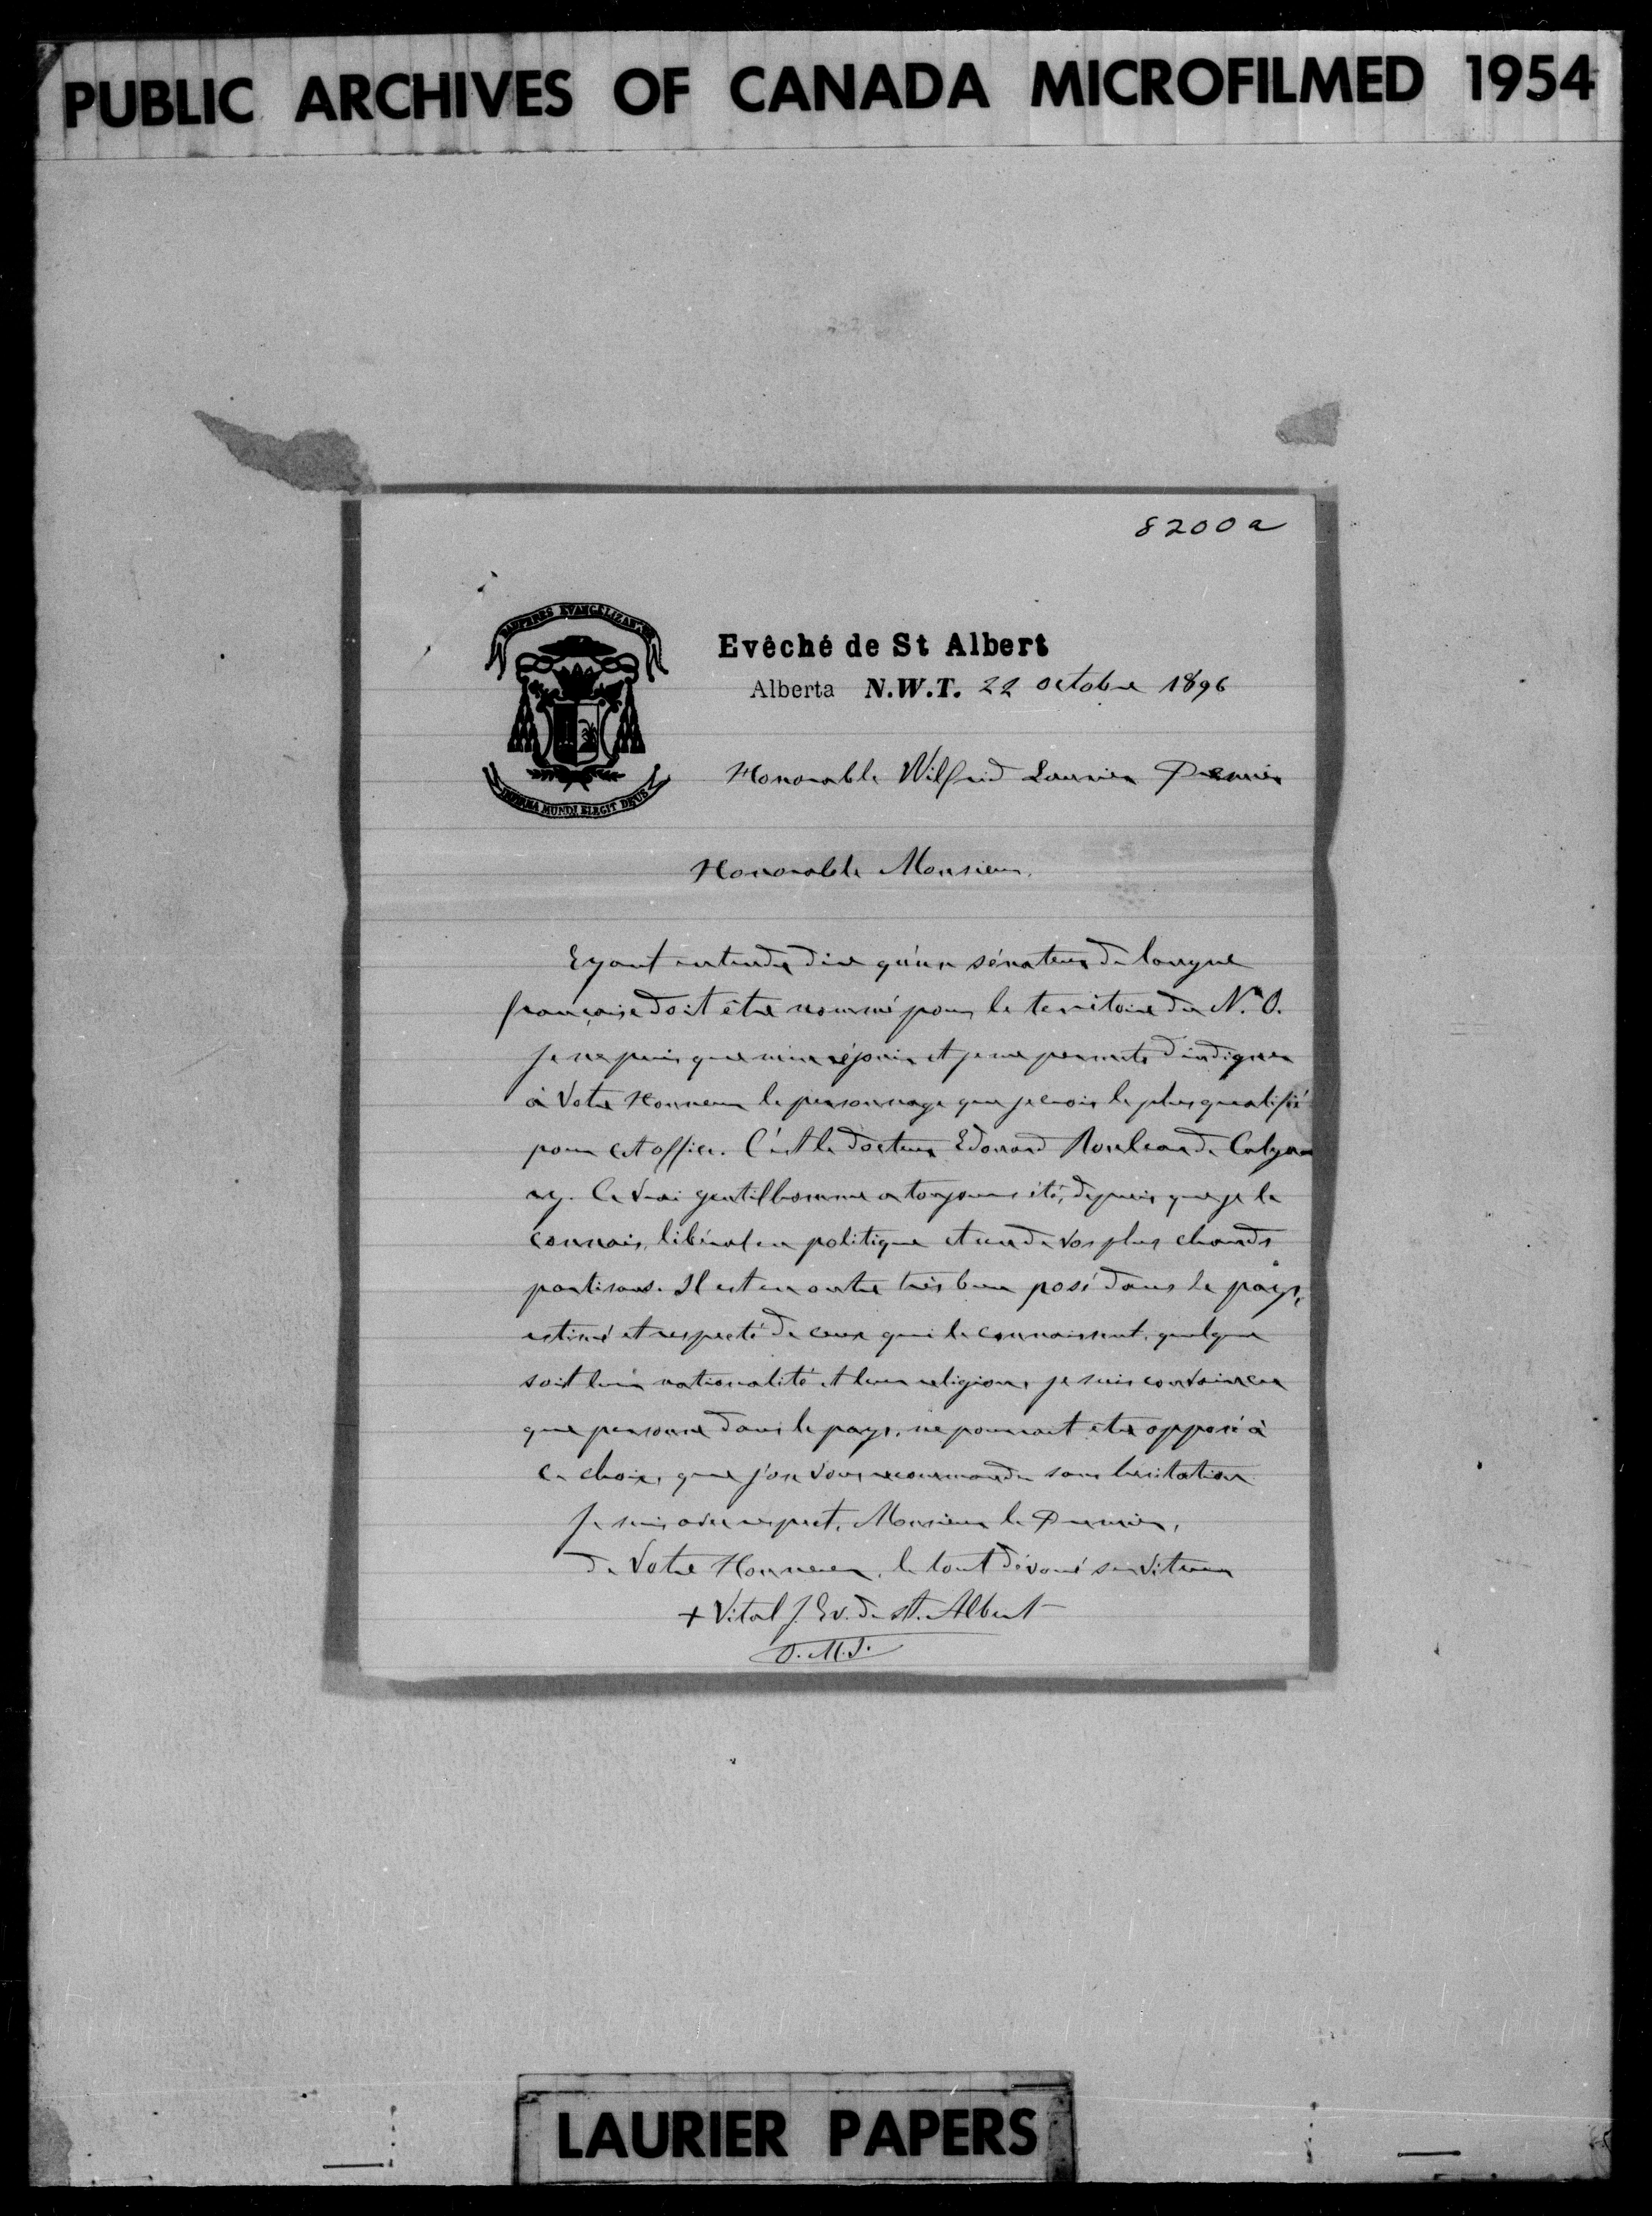 PUBLIC ARCHIVES OF CANADA MICROFILMED 1954
8200a
PAUPERES EVANGELIZANTUR
Evêché de St Albert
Alberta N.W.T. 22 octobre 1896
INFIRMA MUNDI ELEGIT DEUS
Honorable Wilfrid Laurier Premier
Honorable Monsieur.
Eyant entendu dire qu'un sénateur de langue
française doit être nommé pour le territoire du N. O.
je ne puis que m'en réjouir et je me permets d'indiquer
à Votre Honneur le personnage que je crois le plus qualifié
pour cet office. C'est le docteur Edouard Rouleau de Calga
ry. Ce vrai gentilhomme a toujours été, depuis que je le
connais, libéral en politique et un de vos plus chauds
partisans. Il est en outre très bien posé dans le pays,
estimé et respecté de ceux qui le connaissent, quelque
soit leur nationalité et leur religion, je suis convaincu
que personne dans le pays, ne pourrait etre opposé à
ce choix, que j'ose vous recommander sans hésitation
Je suis avec respect, Monsieur le Premier,
de Votre Honneur, le tout dévoué serviteur
+ Vital J. Ev. de St. Albert
O.M.I.
LAURIER PAPERS